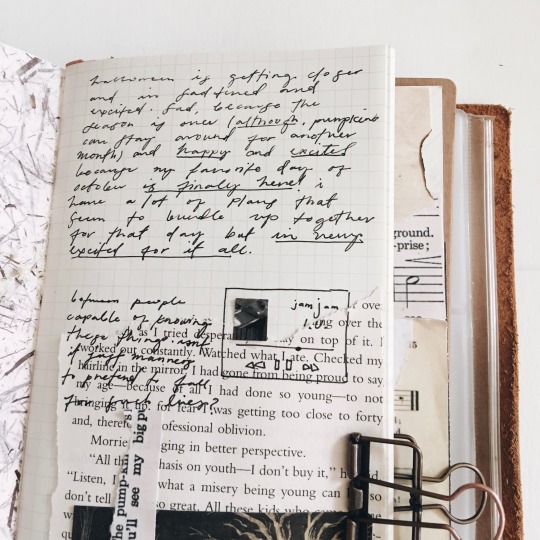 halloween is getting closer
and im sad tired and
excited. sad, because the
season is over (although, pumpkins
can stay around for another
month) and happy and excited
because my favorite day of
october is finally here! i
have a lot of plans that
seem to bundle up together
for that day but im very
excited for it all.
between people
capable of knowing
these things isn't
it just manners
to pretend to fall
for such lines?
jam jam
as I tried
on top of it. I
worked out constantly. Watched what I ate. Checked my
hairline in the mirror. I had gone from being proud to say
my age—because of all I had done so young—to not
bringing it up, for fear I was getting too close to forty
and, therefore, professional oblivion.
Morrie
ging in better perspective.
"All th
hasis on youth—I don't buy it," he said.
"Listen, I
what a misery being young can
so
don't tell
so great. All these kids who came
the pump-kin
u'll see my big p
ground.
-prise;